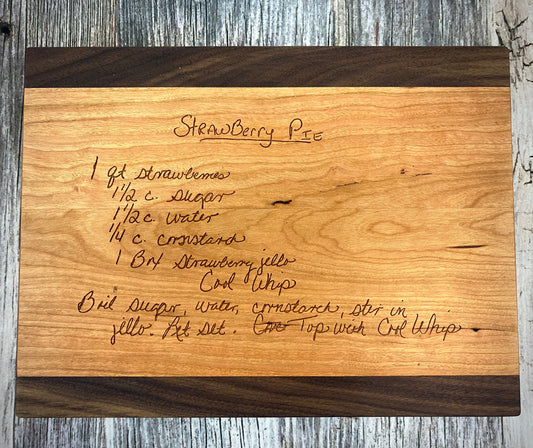 Strawberry Pie
1 qt strawberries
1 1/2 c. sugar
1 1/2 c. water
1/4 c. cornstarch
1 Box strawberry jello
Cool Whip
Boil sugar, water, cornstarch, stir in
jello. Let set. Top with Cool Whip